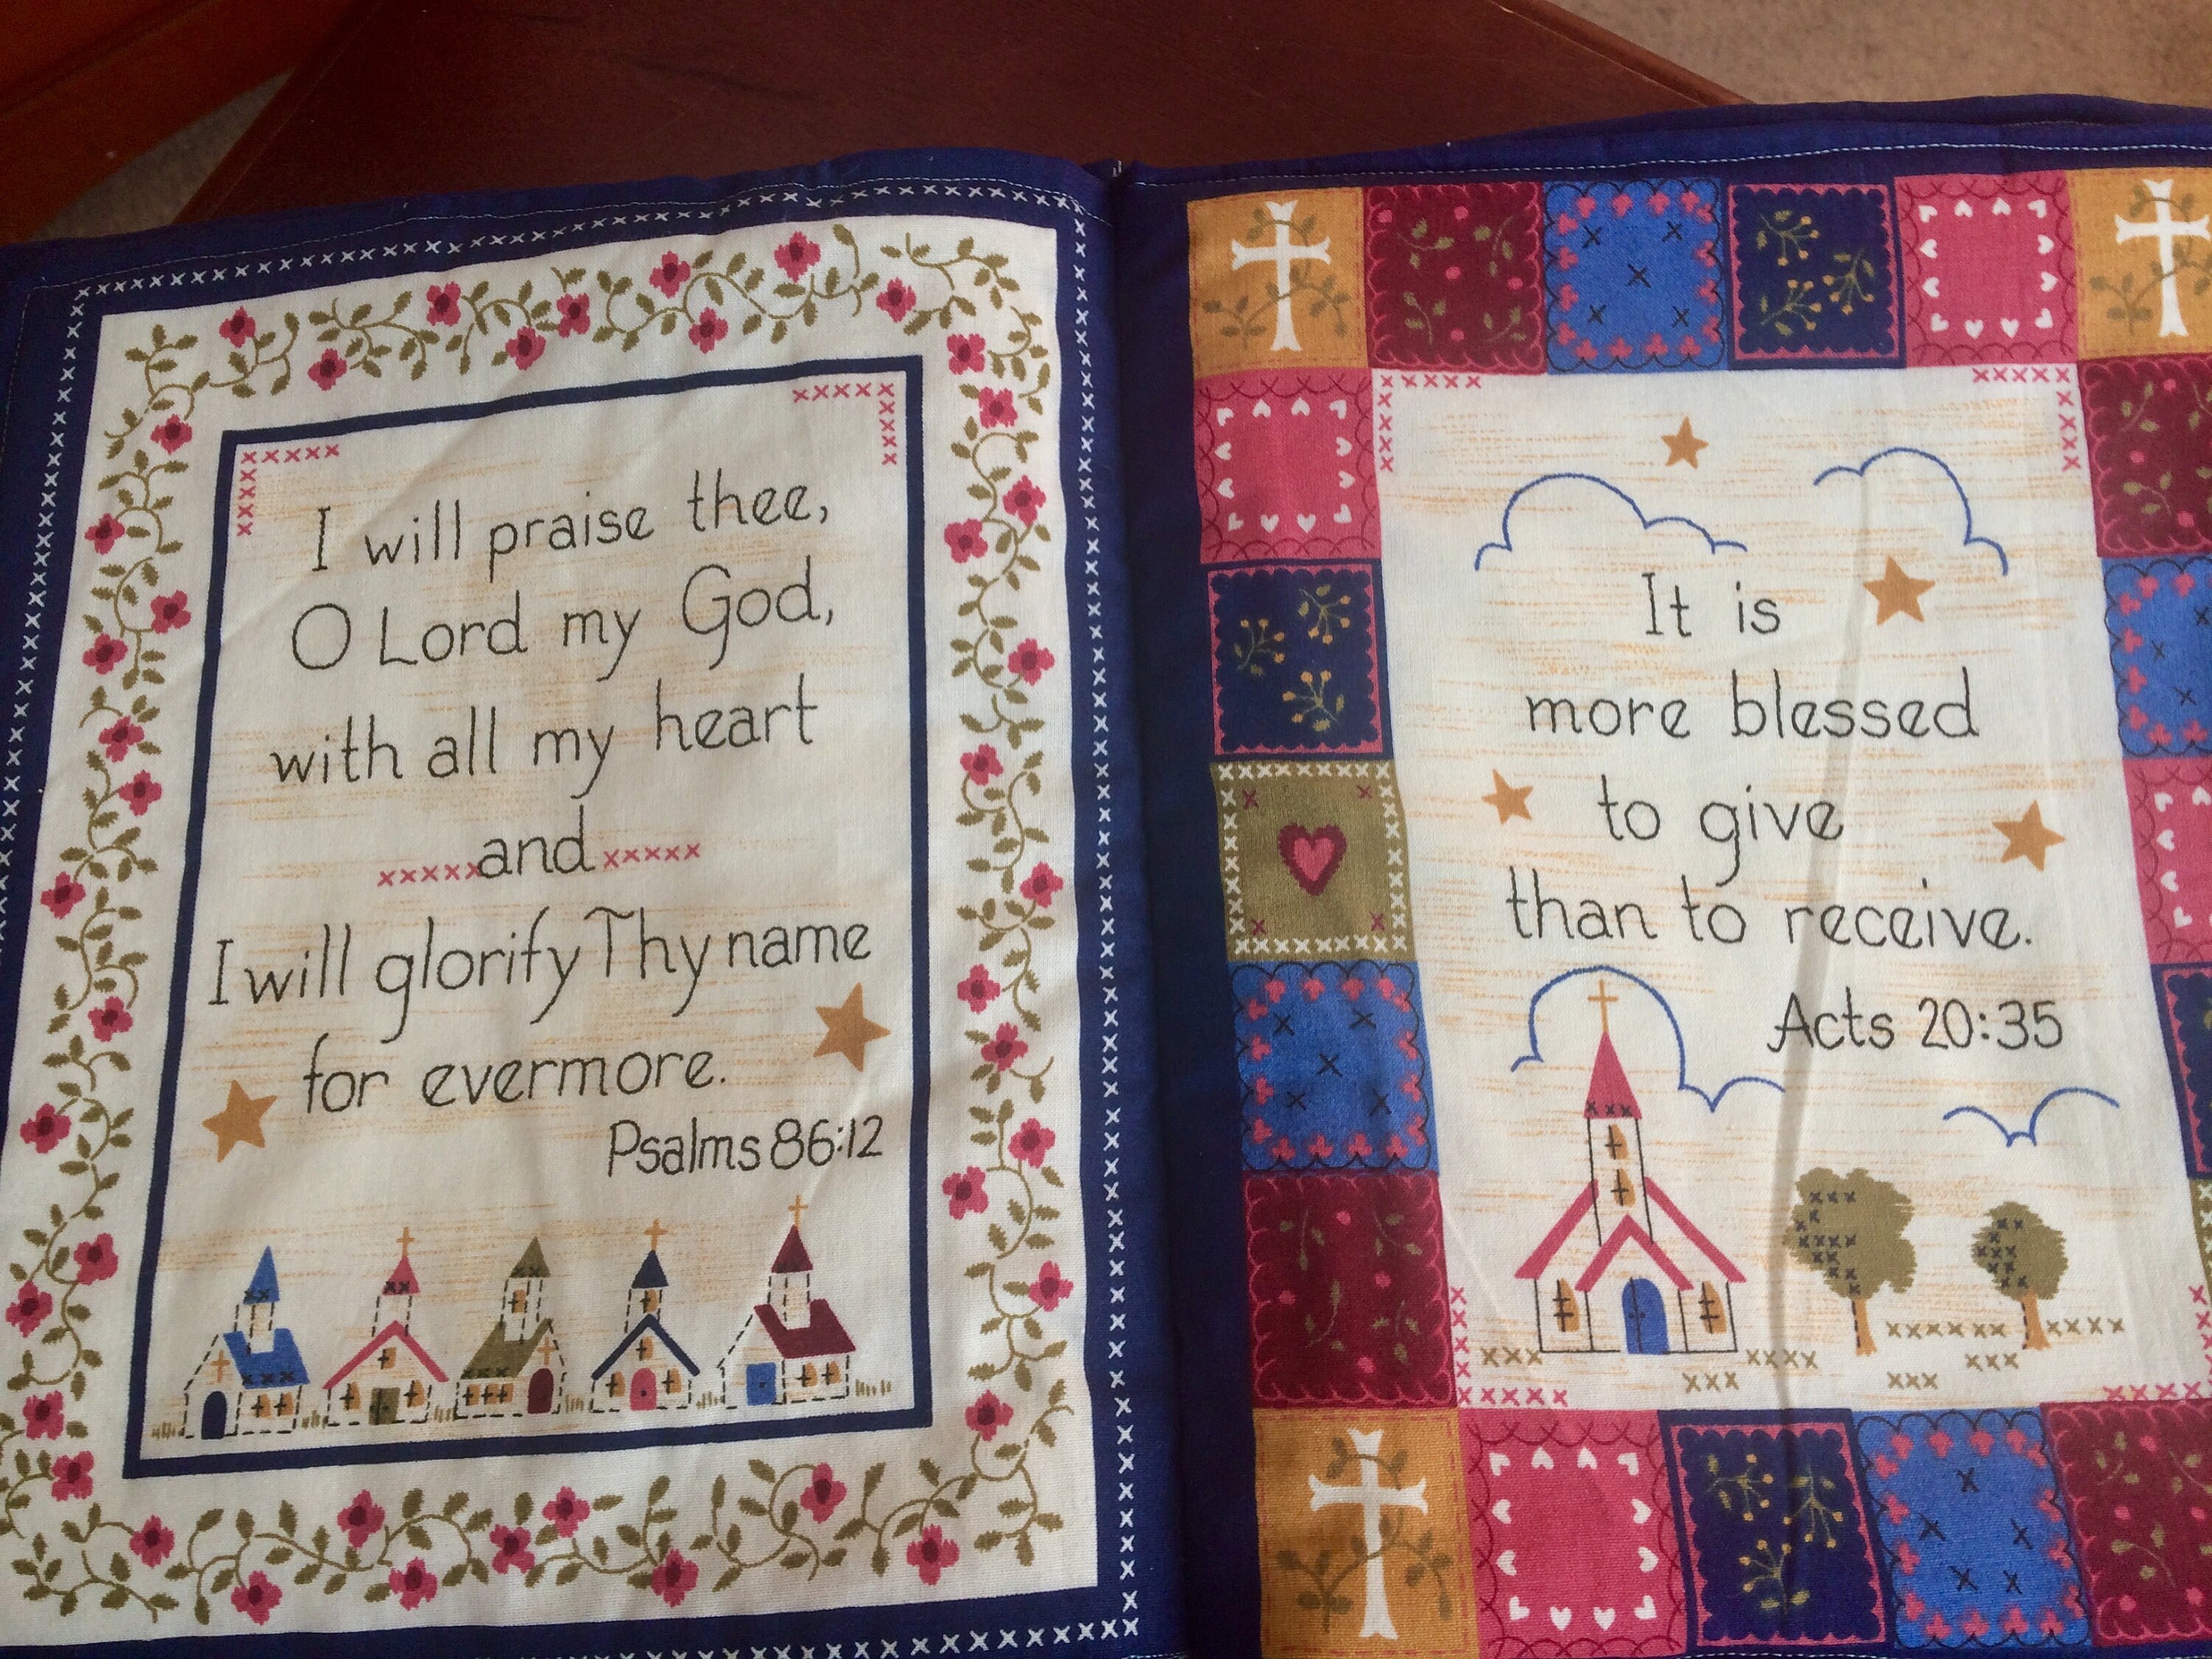 I will praise thee,
O Lord my God,
with all my heart
and
I will glorify Thy name
for evermore.
Psalms 86:12
It is
more blessed
to give
than to receive.
Acts 20:35